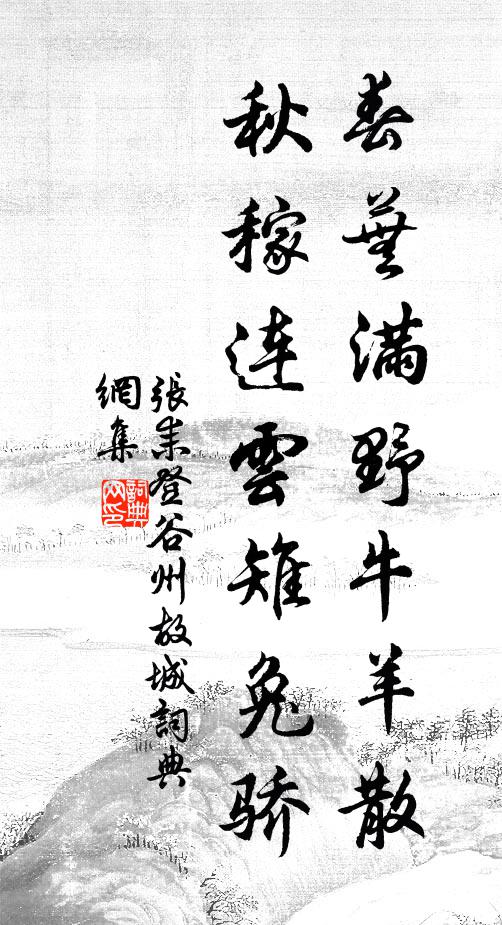 春蕪滿野牛羊散
秋稼連雲雉兔骄
張耒登谷州故城詞典
網集
詞典
网印